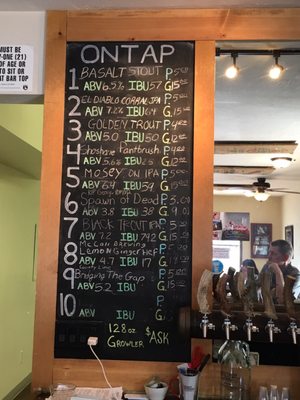 MUST BE
ONE (21)
OF AGE OR
TO SIT OR
AT BAR TOP
ON TAP
1 BASALT STOUT P 5.00
ABV 6.5% IBU 57 G 15.00
2 EL DIABLO CORRAL IPA P
ABV 7.2% IBU 64 G
3 GOLDEN TROUT P 4.00
ABV 5.0 IBU 50 G 12.00
4 Shoshone Paintbrush P
ABV 5.6% IBU 25 G
5 MOSEY ON IPA P 5.00
ABV 6.4 IBU 59 G 15.00
6 Spawn of Death P 5
ABV 3.8 IBU 38 G
7 BLACK TROUT IPA P 5
ABV 7.2 IBU 79.2 G 15.00
8 McCall Brewing
Lemon Ginger Hef P
ABV 4.7 IBU 17 G
9 Bridging The Gap P 5
ABV 5.2 IBU G
10 P
ABV IBU G
128oz
GROWLER $ASK